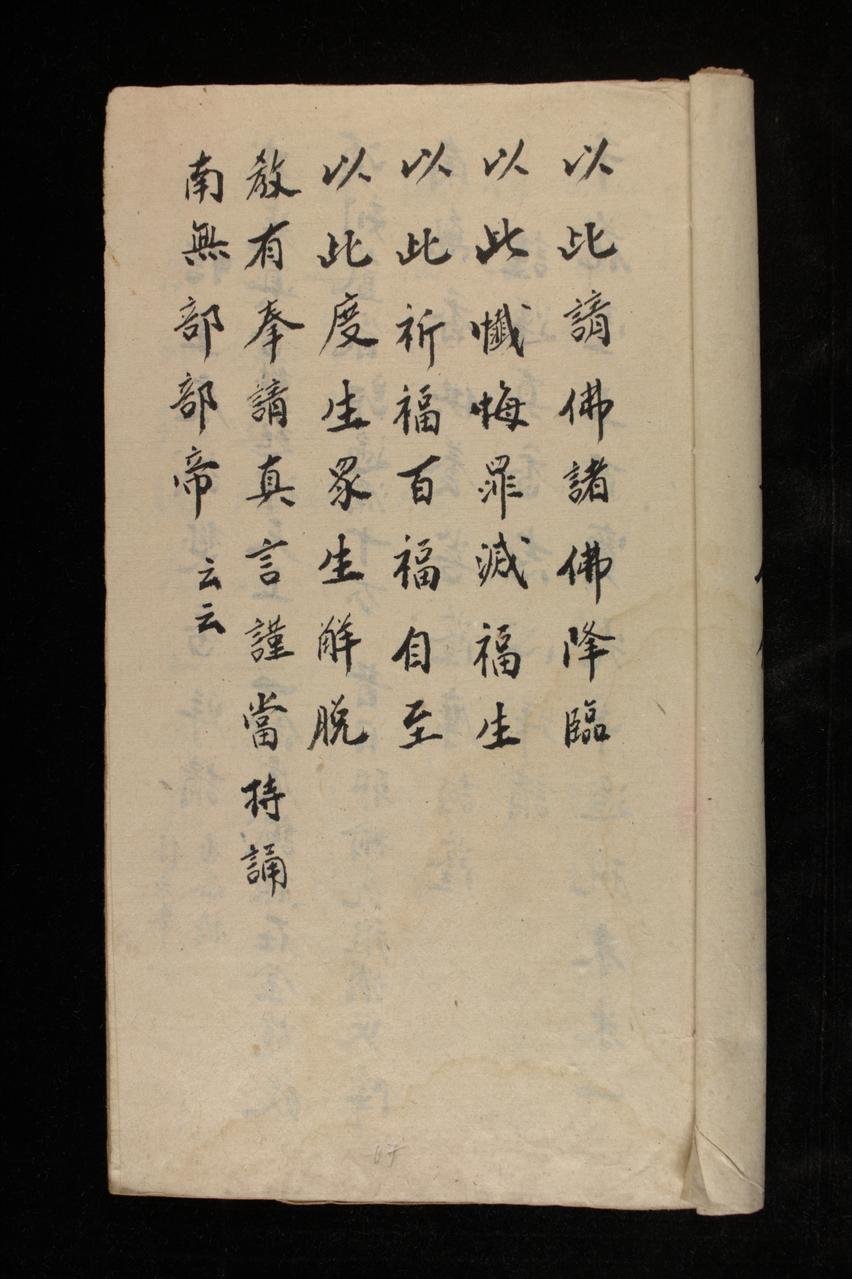 以此請佛諸佛降臨
以此懺悔罪滅福生
以此祈福百福自至
以此度生眾生解脫
教有奉請真言謹當持誦
南無部部帝 云云